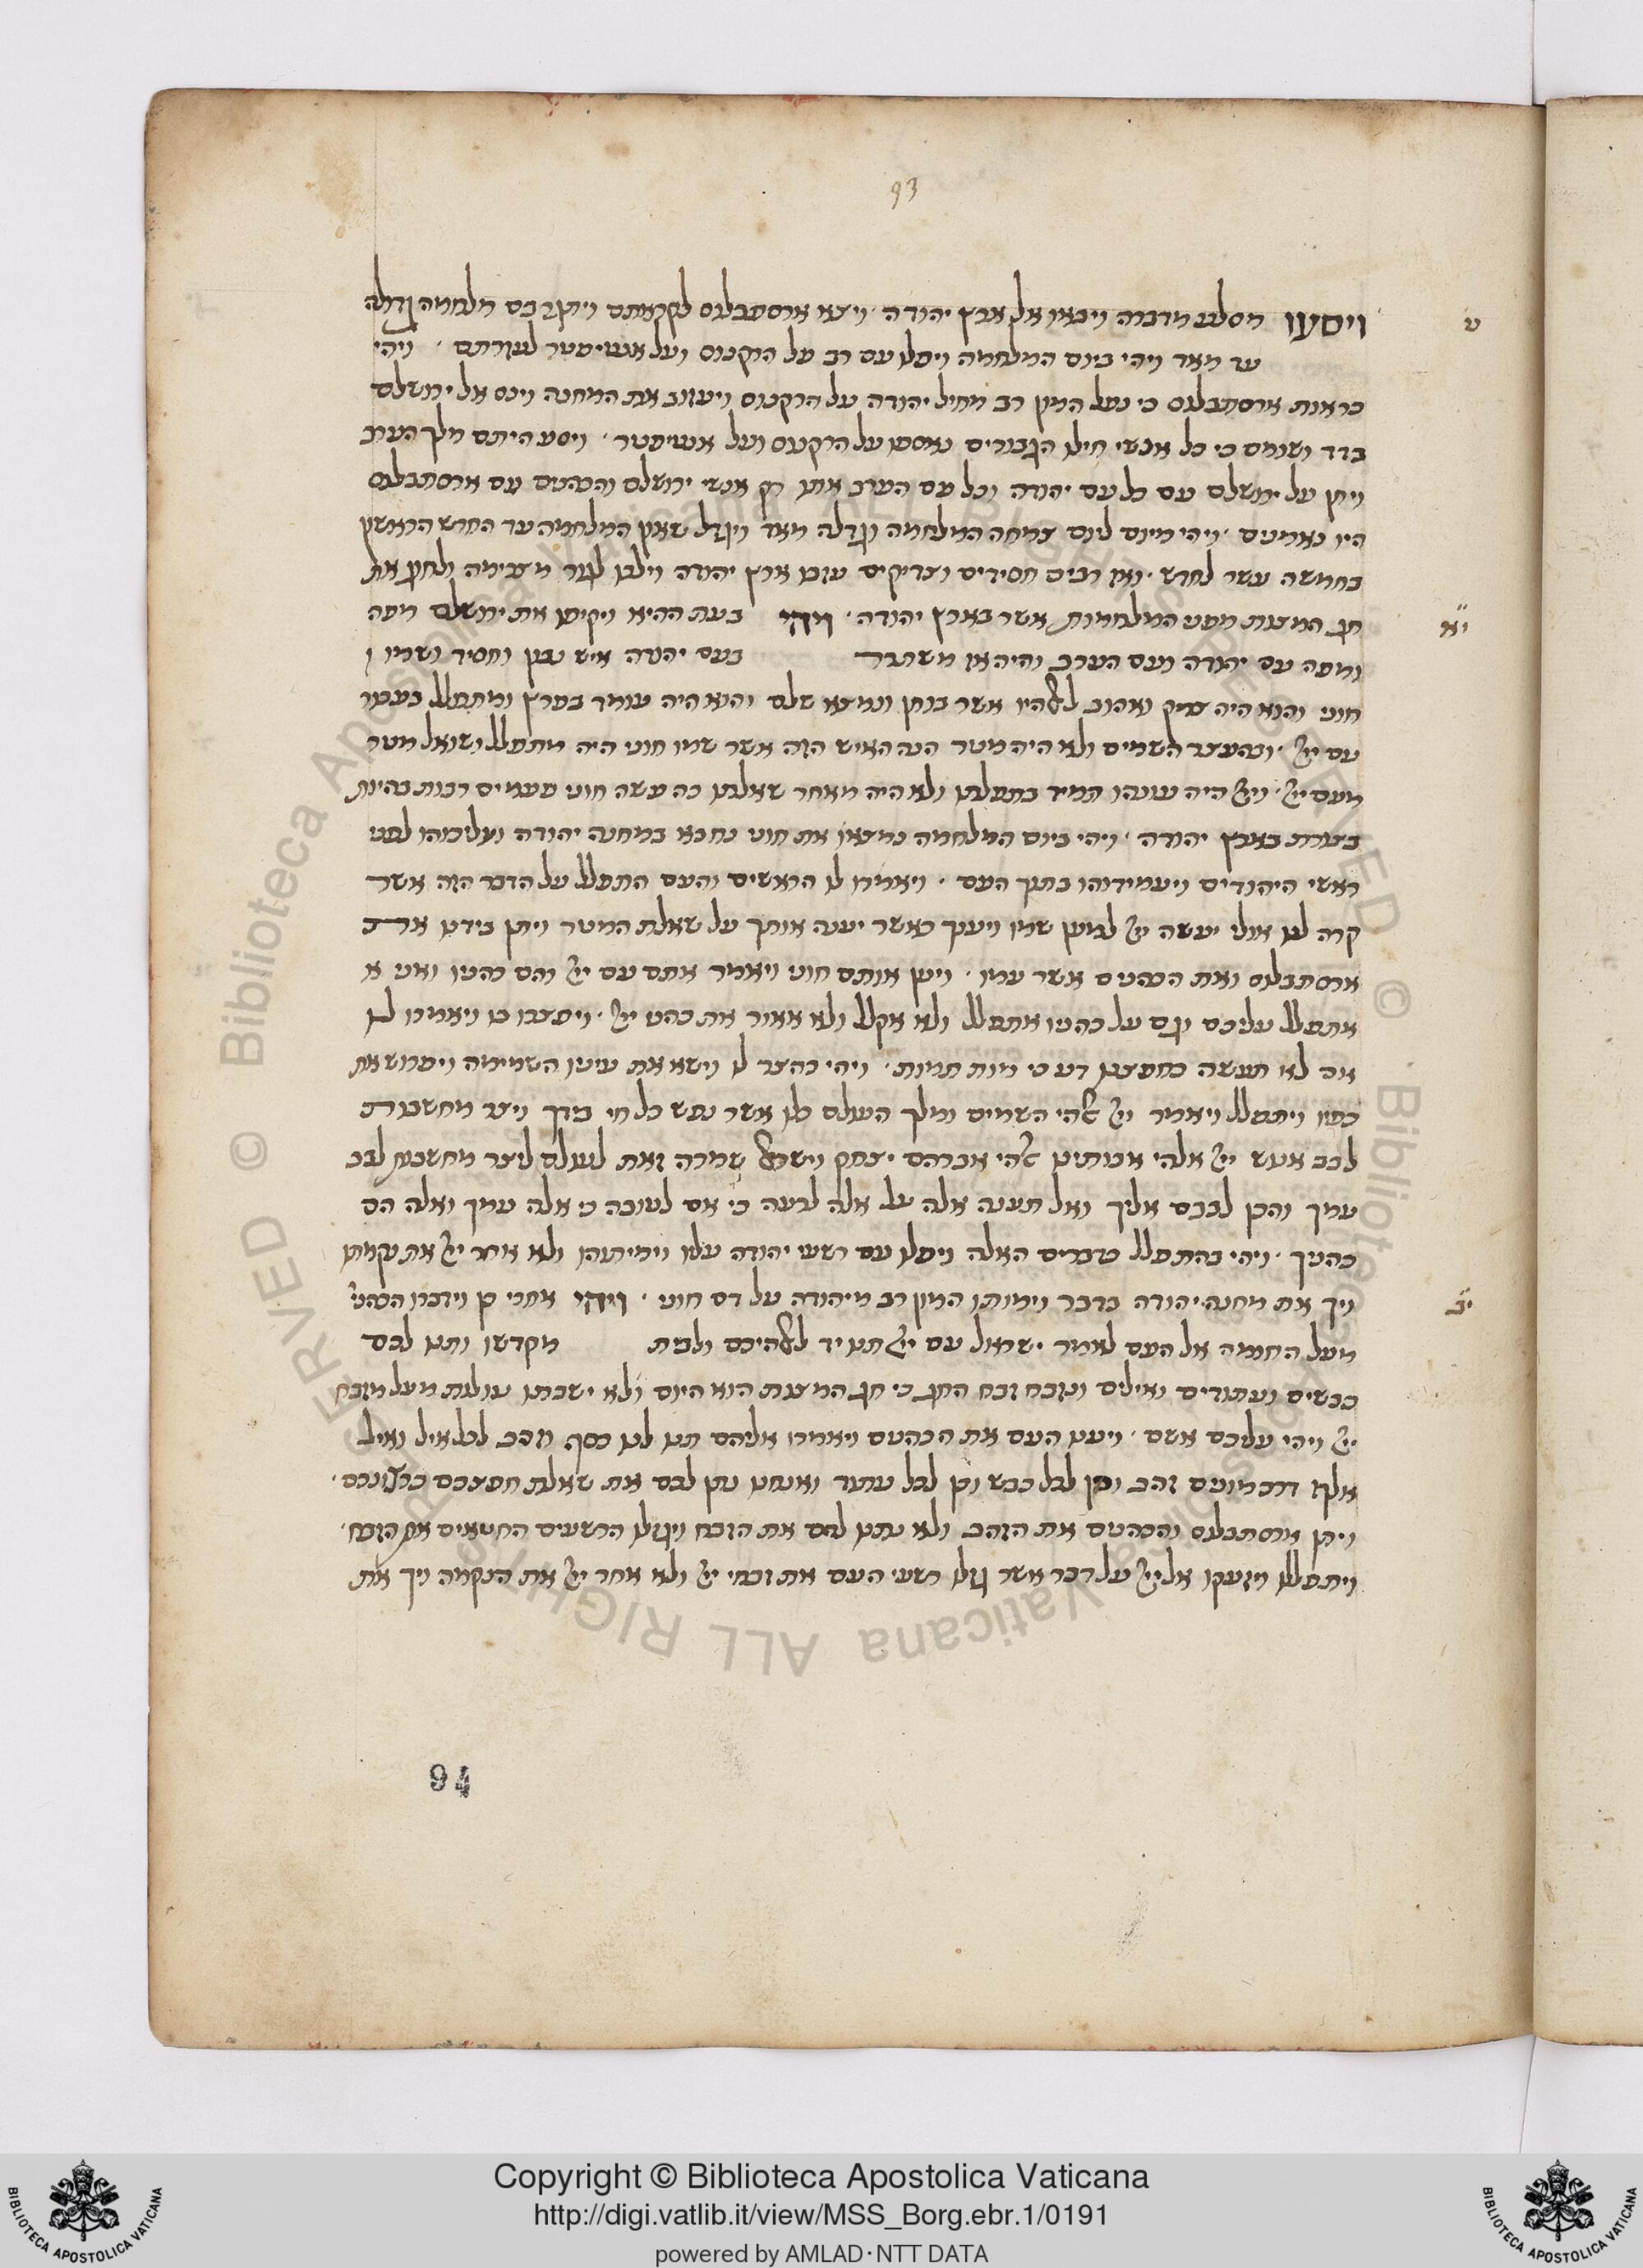 93
ויסעו מסלע מדברה ויבאו אל ארץ יהודה ויצא ארסתבלוס לקראתם ויתגר בם מלחמה גדולה
עד מאד ויהי ביום המלחמה ויפול עם רב על הרקנוס ועל אנטיפטר לעזרתם ויהי
כראות ארסתבלוס כי נפל המון רב מחיל יהודה על הרקנוס ויעזוב את המחנה וינס אל ירושלם
בדד ושומם כי כל אנשי חילו הגבורים נאספו על הרקנוס ועל אנטיפטר ויסע היתם מלך הערב
ויחן על ירושלם עם כל עם יהודה וכל עם הערב אתו רק אנשי ירושלם והכהנים עם ארסתבלוס
היו נאמנים ויהי מיום ליום צמחה המלחמה וגדלה מאד ויגדל שאון המלחמה עד החדש הראשון
בחמשה עשר לחדש ואז רבים חסידים וצדיקים עזבו ארץ יהודה וילכו לגור מצרימה ולחוג את
חג המצות מפני המלחמות אשר בארץ יהודה ויהי בעת ההיא ויקיפו את ירושלם מפה
ומפה עם יהודה ועם הערב והיה אז משתבר בעם יהודה איש נבון וחסיד ושמו ו
חוני והוא היה צדיק ואהוב לאלהיו אשר בוחן ונמצא שלם והוא היה עומד בפרץ ומתפלל בעבור
עם ייי ובהעצר השמים ולא היה מטר הנה האיש הזה אשר שמו חוני היה מתפלל ושואל מטר
מעם ייי וייי היה עונהו תמיד בתפלתו ולא היה מאחר שאלתו כה עשה חוני פעמים רבות בהיות
בצורת בארץ יהודה ויהי ביום המלחמה נמצאו את חוני נחבא במחנה יהודה ועליכוהו לפני
ראשי היהודים ויעמידוהו בתוך העם ויאמרו לו הראשים והעם התפלל על הדבר הזה אשר
קרה לנו אולי יעשה ייי למען שמו ויענך כאשר יענה אותך על שאלת המטר ויתן בידנו את
ארסתבלוס ואת הכהנים אשר עמו ויען אותם חוני ויאמר אתם עם ייי והם כהניו ואני א
אתפלל עליכם וגם על כהניו אתפלל ולא אקלל ולא אאור את כהני ייי ויפצרו בו ויאמרו לו
אם לא תעשה כחפצנו דע כי מות תמות ויהי בהצר לו וישא את עיניו השמימה ויפרוש את
כפיו ויתפלל ויאמר ייי אלהי השמים ומלך העולם כלו אשר נפש כל חי בידך ויצר מחשבות
לבב אנוש ייי אלהי אבותינו אלהי אברהם יצחק וישראל שמרה זאת לעולם ליצר מחשבות לבב
עמך והכן לבבם אליך ואל תענה אלה על אלה לרעה כי אם לטובה כי אלה עמך ואלה הם
כהניך ויהי בהתפלל כדברים האלה ויפלו עם רשעי יהודה עליו וימיתוהו ולא אחר ייי את נקמתו
ויך את מחנה יהודה בדבר וימותו המון רב מיהודה על דם חוני ויהי אחרי כן וידברו הכהני
מעל החומה אל העם לאמר ישראל עם ייי תנו יד לאלהיכם ולבית מקדשו ותנו לכם
כבשים ועתודים ואילים ונזבח זבח החג כי חג המצות הוא היום ולא ישבתו עולות מעל מזבח
ייי ויהי עליכם אשם ויענו העם את הכהנים ויאמרו אליהם תנו לנו כסף וזהב לכל איל ואיל
אלף דרכמונים זהב וכן לכל כבש וכן לכל עתוד ואנחנו נתן לכם את שאלת חפצכם כרצונכם
ויתן ארסתבלוס והכהנים את הזהב ולא נתנו להם את הזבח ויגזלו הרשעים החטאים את הזבח
ויתפללו ויזעקו אל ייי על דבר אשר גזלו רשעי העם את זבחי ייי ולא אחר ייי את הנקמה ויך את
י
יא
יב
94
Copyright © Biblioteca Apostolica Vaticana
http://digi.vatlib.it/view/MSS_Borg.ebr.1/0191
powered by AMLAD·NTT DATA
BIBLIOTECA APOSTOLICA VATICANA
BIBLIOTECA APOSTOLICA VATICANA
© Biblioteca Apostolica Vaticana ALL RIGHTS RESERVED © Biblioteca Apostolica Vaticana ALL RIGHTS RESERVED